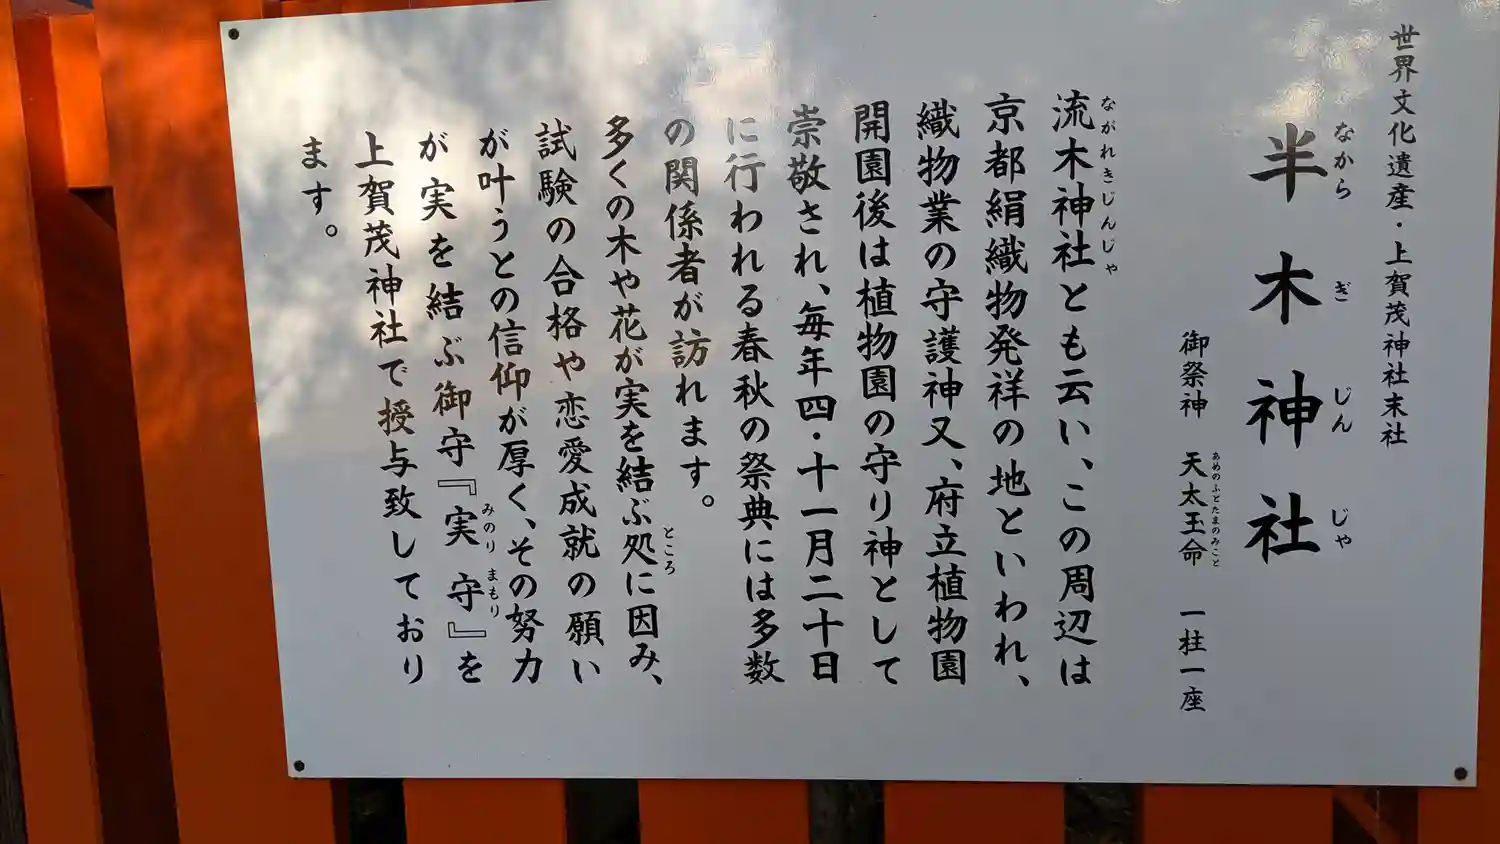 世界文化遺産・上賀茂神社末社
半木神社
なからぎじんじゃ
御祭神　天太玉命　一柱一座
あめのふとたまのみこと
流木神社とも云い、この周辺は
ながれきじんじゃ
京都絹織物発祥の地といわれ、
織物業の守護神又、府立植物園
開園後は植物園の守り神として
崇敬され、毎年四・十一月二十日
に行われる春秋の祭典には多数
の関係者が訪れます。
多くの木や花が実を結ぶ処に因み、
ところ
試験の合格や恋愛成就の願い
が叶うとの信仰が厚く、その努力
が実を結ぶ御守『実守』を
みのりまもり
上賀茂神社で授与致しており
ます。